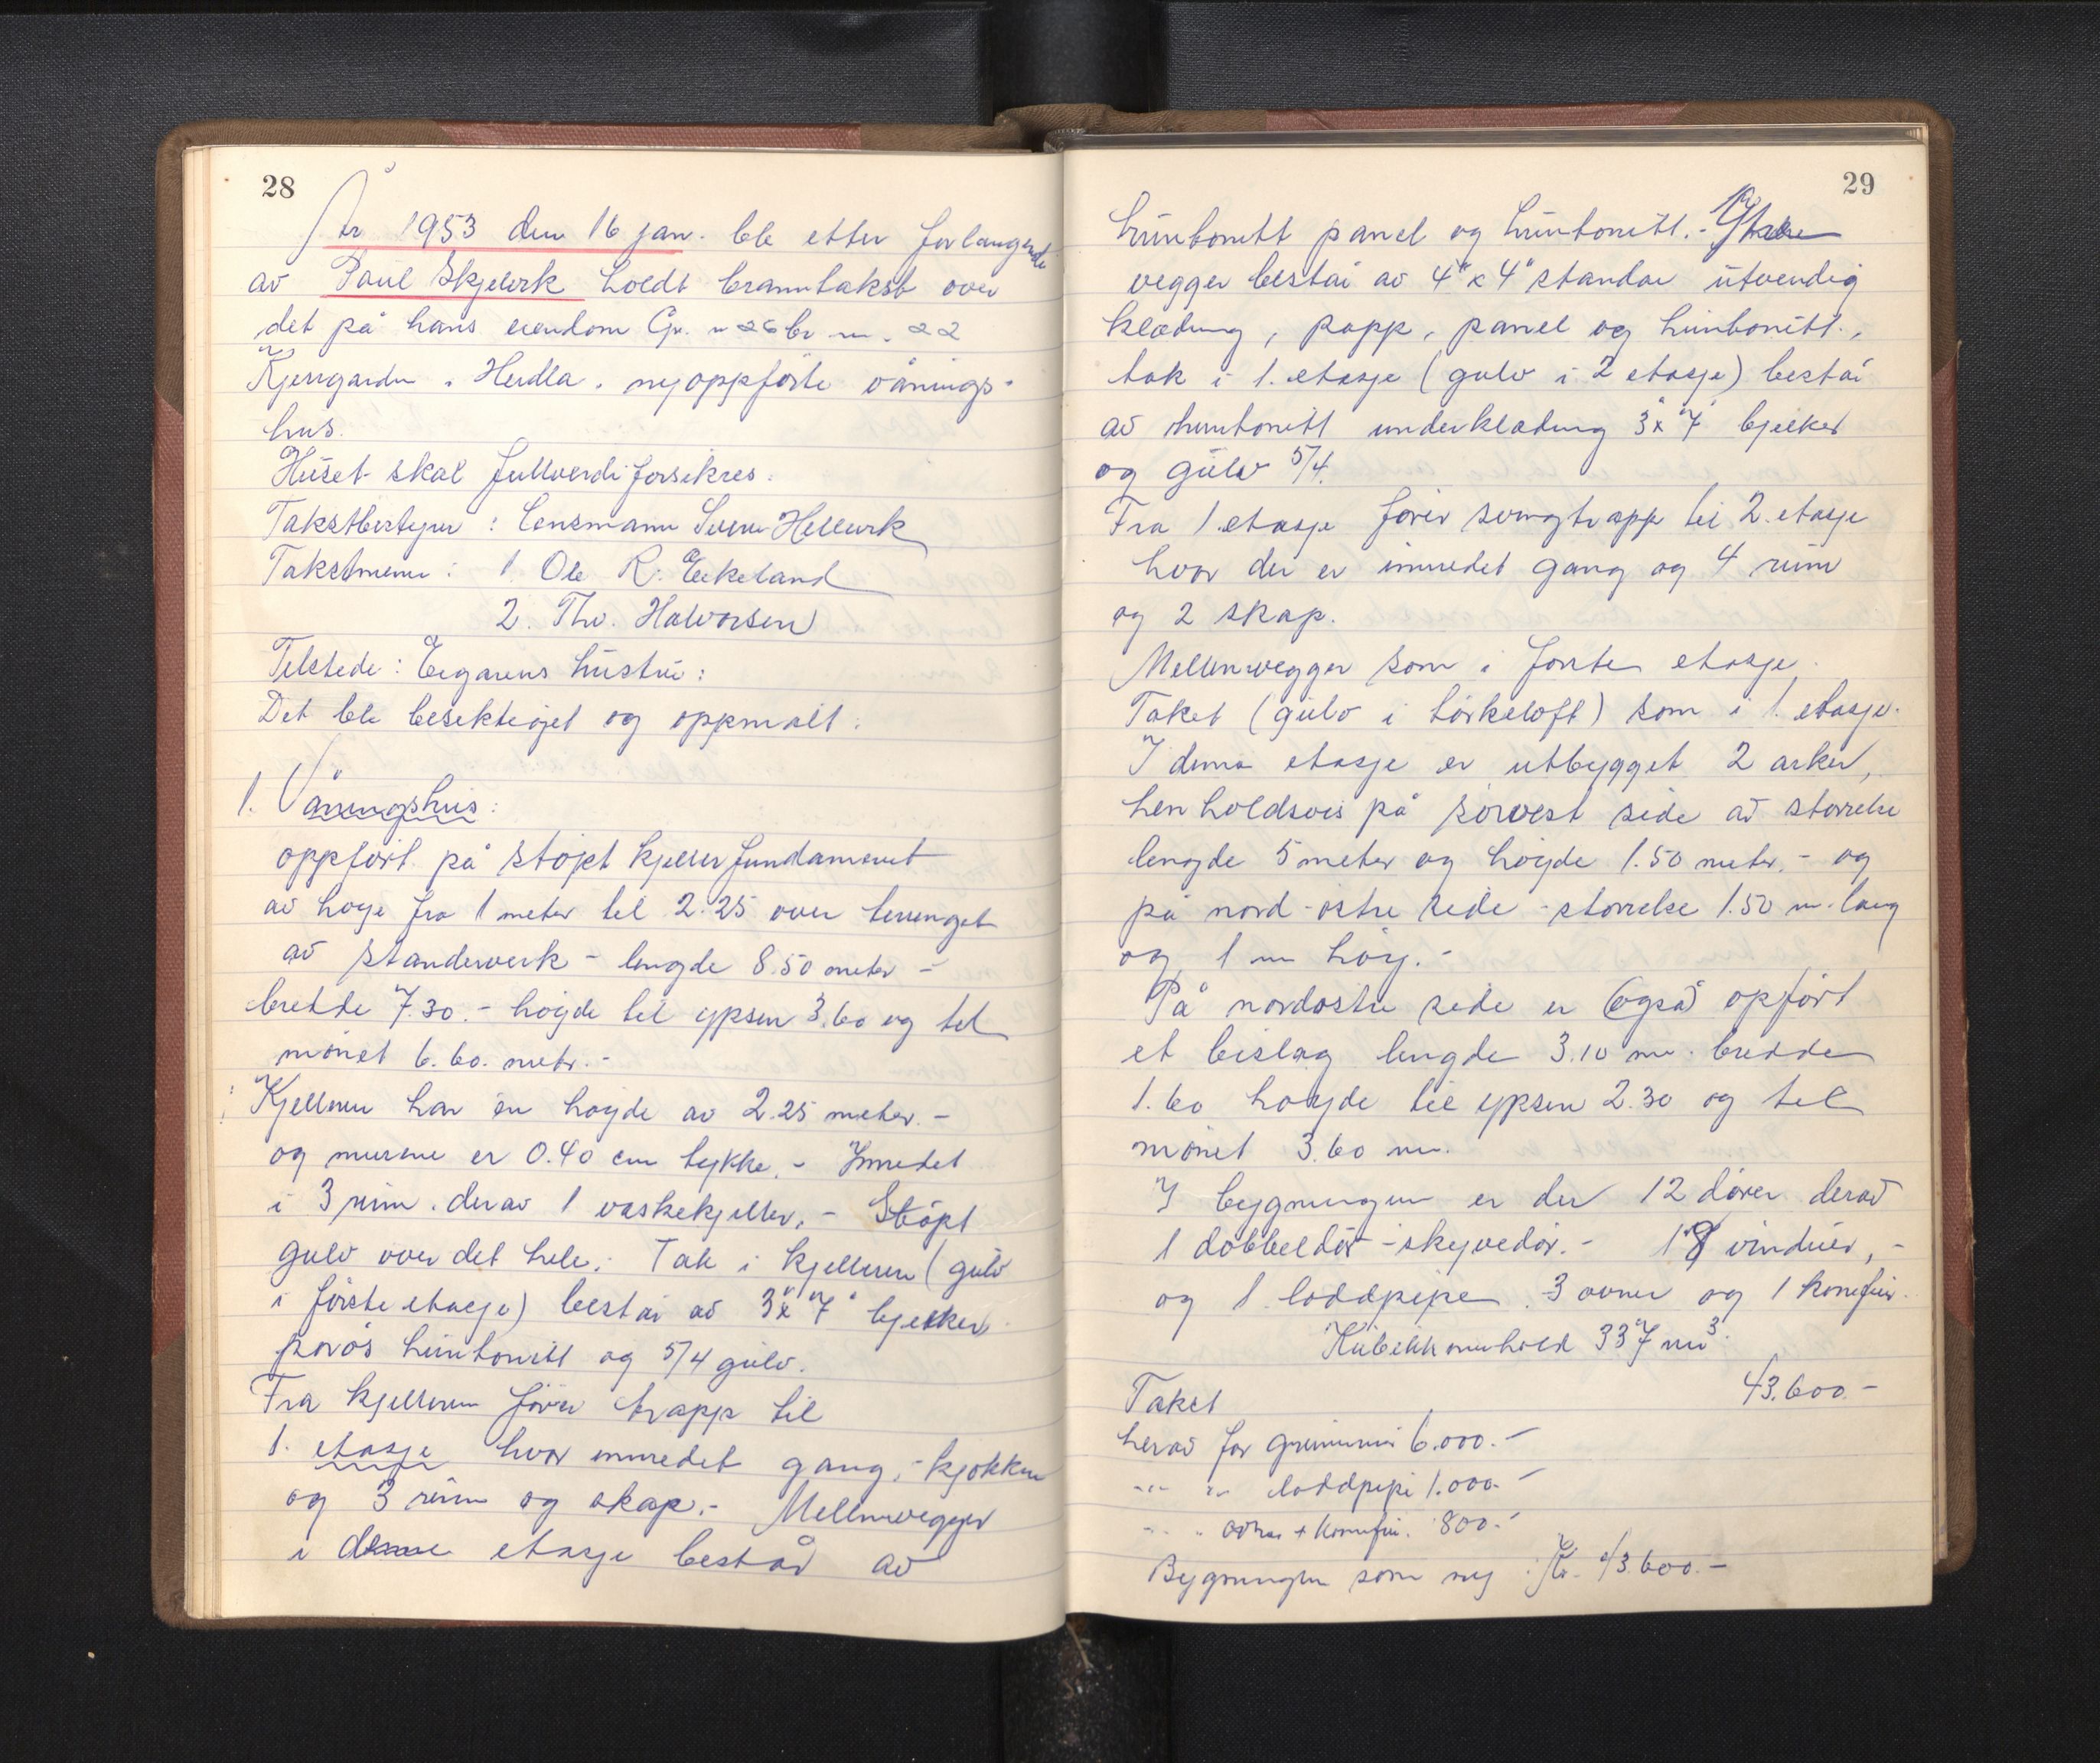 28
År 1953 den 16 jan. ble etter forlangende
av Paul Skjelvik holdt branntakst over
det på hans eiendom Gr. n 26 br. nr. 22
Kjerrgarden i Herdla, nyoppførte vånings-
hus.
Huset skal fullverdiforsikres.
Takstbestyrer : Lensmann Sverre Hellevik
Takstmenn : 1. Ole R. Eikeland
2. Thv. Halvorsen
Tilstede : Eigarens hustru :
Det ble besiktiget og oppmålt :
1. Våningshus :
oppført på støpt kjeller fundament
av høye fra 1 meter til 2.25 over terrenget
av standerverk - lengde 8.50 meter -
bredde 7.30. - høgde til ypsen 3.60 og til
mønet 6.60. meter. -
Kjelleren har en høyde av 2.25 meter. -
og murene er 0.40 cm tykke. - Innredet
i 3 rum. derav 1 vaskekjeller. - Støpt
gulv over det hele. Tak i kjelleren (gulv
i første etasje) består av 3" x 7" bjelker
porøs huntonitt og 5/4 gulv.
Fra kjelleren fører trapp til
1. etasje hvor innredet gang, - kjøkken
og 3 rum og skap. - Mellemvegger
i denne etasje består av
29
huntonitt panel og huntonitt. - Ytre
vegger består av 4" x 4" standar utvendig
kledning, papp, panel og huntonitt.,
tak i 1. etasje (gulv i 2 etasje) består
av huntonitt underkledning 3" x 7" bjelker
og gulv 5/4.
Fra 1 etasje fører svingtrapp til 2. etasje
hvor der er innredet gang og 4 rum
og 2 skap.
Mellemvegger som i første etasje.
Taket (gulv i tørkeloft) som i 1. etasje.
I denne etasje er utbygget 2 arker,
henholdsvis på sørvest side av størrelse
lengde 5 meter og høyde 1.50 meter. - og
på nord-østre side - størrelse 1.50 m. lang
og 1 m høy. -
På nordøstre side er også opført
et bislag lengde 3.10 m. bredde
1.60 høyde til ypsen 2.30 og til
mønet 3.60 m.
I bygningen er der 12 dører derav
1 dobbeldør - skyvedør. - 18 vinduer, -
og 1 loddpipe. 3 ovner og 1 komfur.
Kubikkinnhold 337 m³.
Takst 43.600.-
herav for grunnmur 6.000.-
-"- " loddpipe 1.000.-
-"- " ovner + komfur. 800.-
Bygningen som ny : Kr. 43.600.-